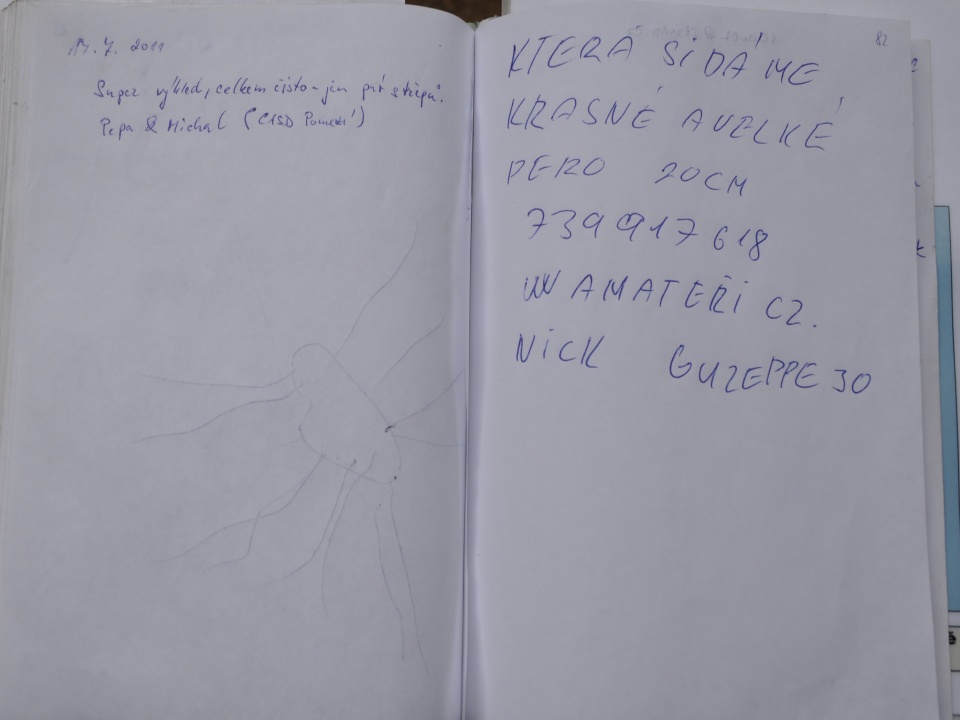 14. 7. 2011
Super výhled, celkem čisto - jen pár střepů.
Pepa & Michal (ČISD Pomezí)
82
KTERÁ SI DÁ ME
KRASNÉ A VELKÉ
PERO 20CM
739 917 618
WAMATEŘI CZ.
NICK GUZEPPE 30